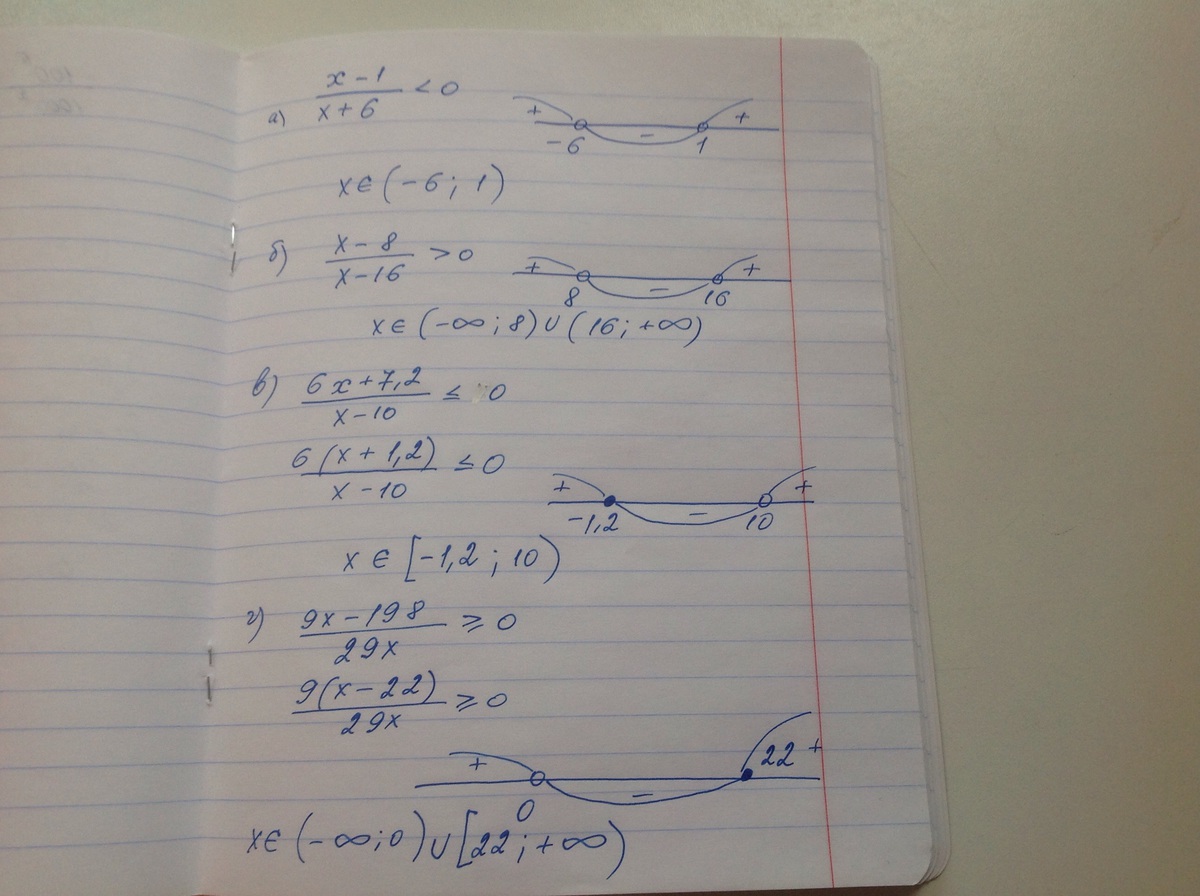 а) x-1/x+6 < 0
+ - +
-6 1
x∈(-6; 1)
б) x-8/x-16 > 0
+ - +
8 16
x∈(-∞; 8)∪(16; +∞)
в) 6x+7,2/x-10 ≤ 0
6(x+1,2)/x-10 ≤ 0
+ - +
-1,2 10
x∈[-1,2; 10)
г) 9x-198/29x ≥ 0
9(x-22)/29x ≥ 0
+ - 22 +
0
x∈(-∞; 0)∪[22; +∞)